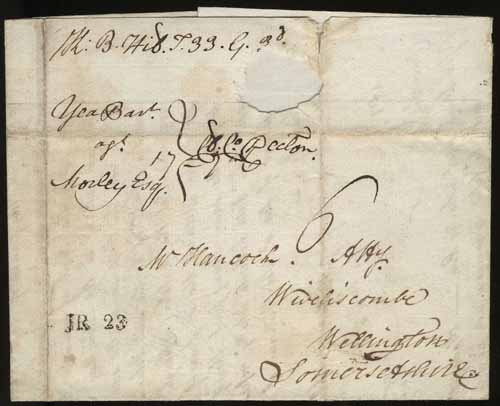 K: B. Hil. T. 33. G. 3d.
Yea Bart.
agt.
Morley Esq.
17
Mr Hancock. Atty.
6
Wiveliscombe
Wellington
Somersetshire
JR 23